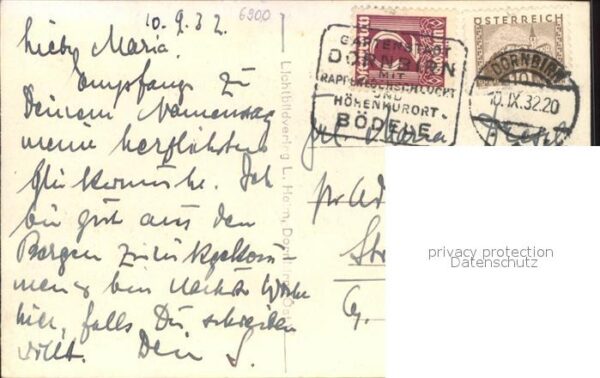 10.9.32.
6900
Liebe Maria.
Empfange zu
Deinem Namenstag
meine herzlichsten
Glückwünsche. Ich
bin gut aus den
Bergen zurückgekom-
men & bin nächste Woche
hier, falls Du schreiben
willst. Dein S.
Lichtbildverlag L. Heim, Dornbirn
GARTENSTADT
DORNBIRN
MIT
RAPPENLOCHSCHLUCHT
UND
HÖHENKURORT
BÖDELE
ÖSTERREICH
10
DORNBIRN
10.IX.32.20
Maria
privacy protection
Datenschutz